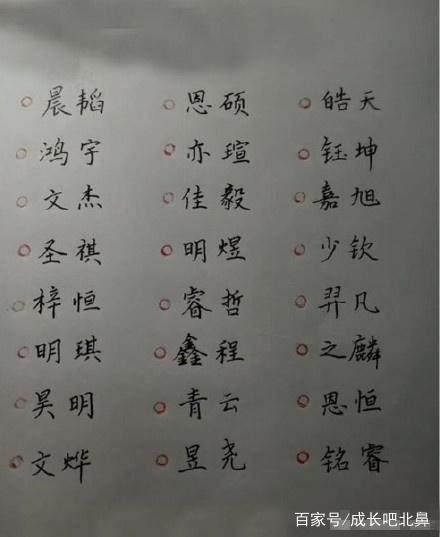 晨韬 恩硕 皓天
鸿宇 亦瑄 钰坤
文杰 佳毅 嘉旭
圣祺 明煜 少钦
梓恒 睿哲 羿凡
明琪 鑫程 之麟
昊明 青云 恩恒
文烨 昱尧 铭睿
百家号/成长吧北鼻